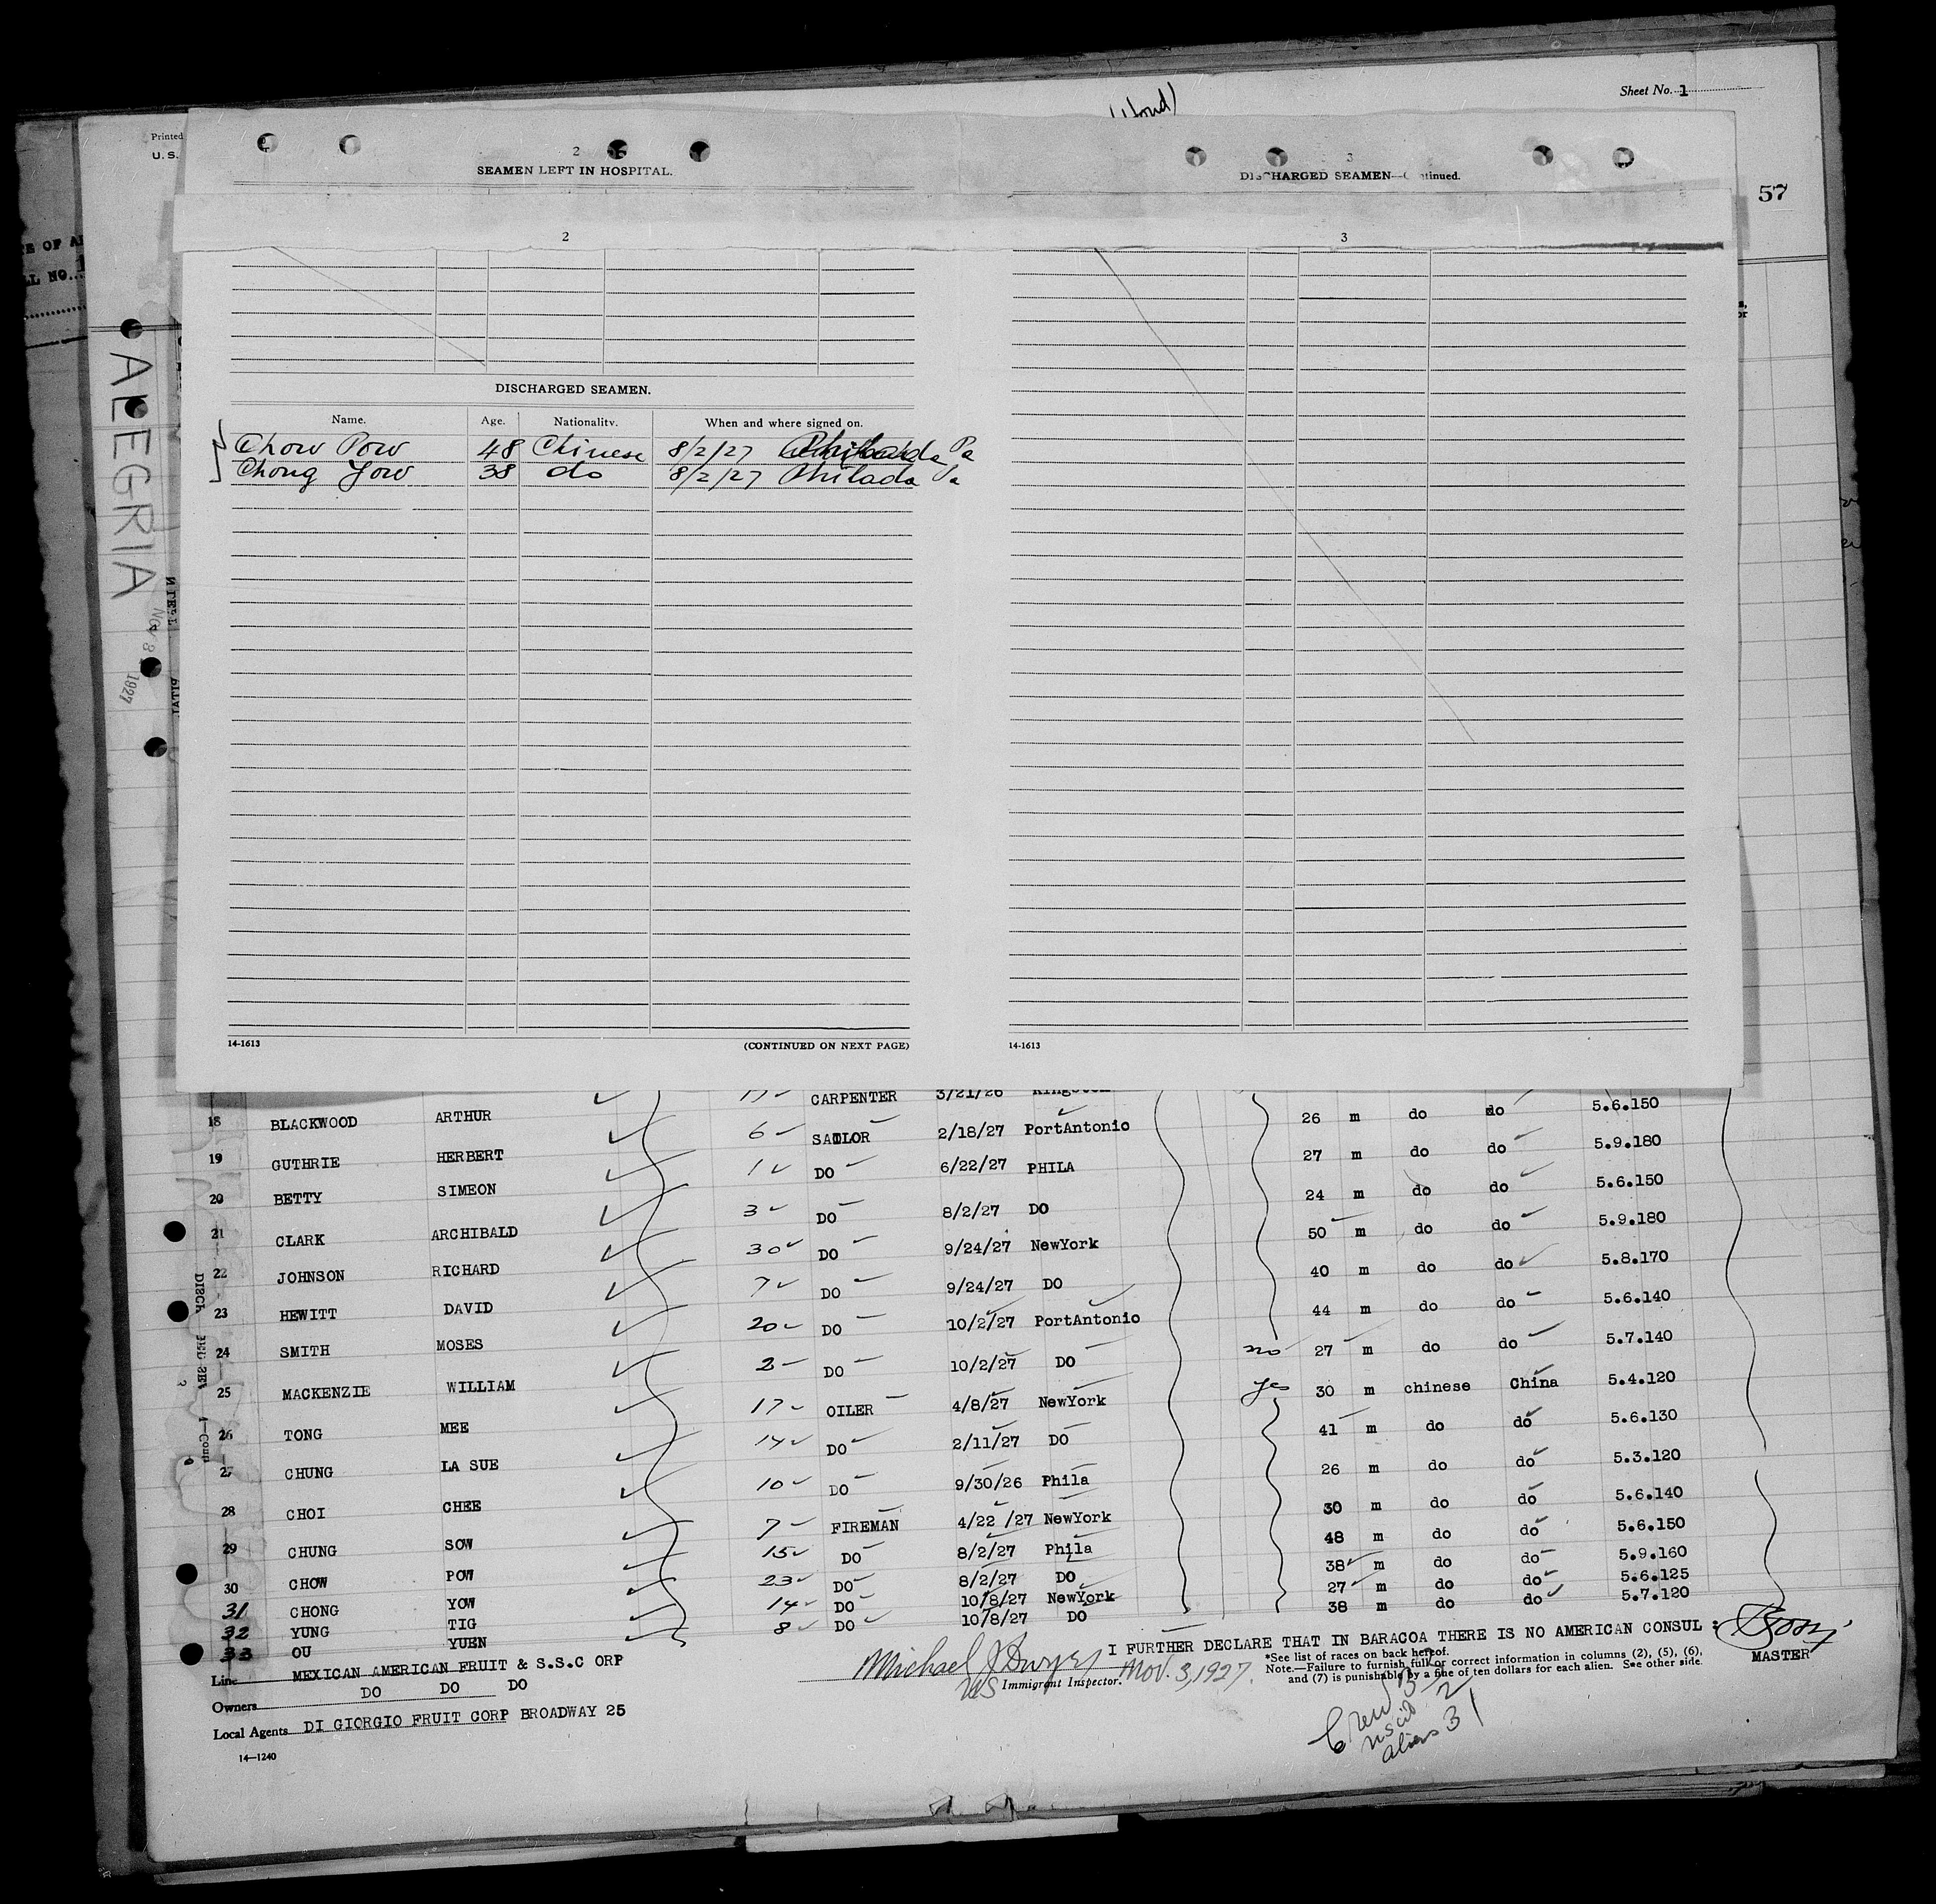 Sheet No. 1
Printed
U. S.
57
2
SEAMEN LEFT IN HOSPITAL.
3
DISCHARGED SEAMEN—C tinued.
2
3
ALEGRIA
Nov 3 1927
DISCHARGED SEAMEN.
Name. Age. Nationality. When and where signed on.
Chow Pow 48 Chinese 8/2/27 Philada Pa
Chong Yow 38 do 8/2/27 Philada Pa
14-1613 (CONTINUED ON NEXT PAGE)
14-1613
17 CARPENTER 3/21/26 Kingston
18 BLACKWOOD ARTHUR 6 SAILOR 2/18/27 PortAntonio 26 m do do 5.6.150
19 GUTHRIE HERBERT 1 DO 6/22/27 PHILA 27 m do do 5.9.180
20 BETTY SIMEON 3 DO 8/2/27 DO 24 m do do 5.6.150
21 CLARK ARCHIBALD 30 DO 9/24/27 NewYork 50 m do do 5.9.180
22 JOHNSON RICHARD 7 DO 9/24/27 DO 40 m do do 5.8.170
23 HEWITT DAVID 20 DO 10/2/27 PortAntonio 44 m do do 5.6.140
24 SMITH MOSES 2 DO 10/2/27 DO no 27 m do do 5.7.140
25 MACKENZIE WILLIAM 17 OILER 4/8/27 NewYork yes 30 m chinese China 5.4.120
26 TONG MEE 14 DO 2/11/27 DO 41 m do do 5.6.130
27 CHUNG LA SUE 10 DO 9/30/26 Phila 26 m do do 5.3.120
28 CHOI CHEE 7 FIREMAN 4/22 /27 NewYork 30 m do do 5.6.140
29 CHUNG SOW 15 DO 8/2/27 Phila 48 m do do 5.6.150
30 CHOW POW 23 DO 8/2/27 DO 38 m do do 5.9.160
31 CHONG YOW 14 DO 10/8/27 NewYork 27 m do do 5.6.125
32 YUNG TIG 8 DO 10/8/27 DO 38 m do do 5.7.120
33 OU YUEN
Line MEXICAN AMERICAN FRUIT & S.S.C ORP
Owners DO DO DO
Local Agents DI GIORGIO FRUIT CORP BROADWAY 25
14—1240
I FURTHER DECLARE THAT IN BARACOA THERE IS NO AMERICAN CONSUL :
Michael J Dwyer Nov. 3, 1927.
US Immigrant Inspector.
MASTER
*See list of races on back hereof.
Note.—Failure to furnish full or correct information in columns (2), (5), (6),
and (7) is punishable by a fine of ten dollars for each alien. See other side.
Crew 33
uscit 2
aliens 31